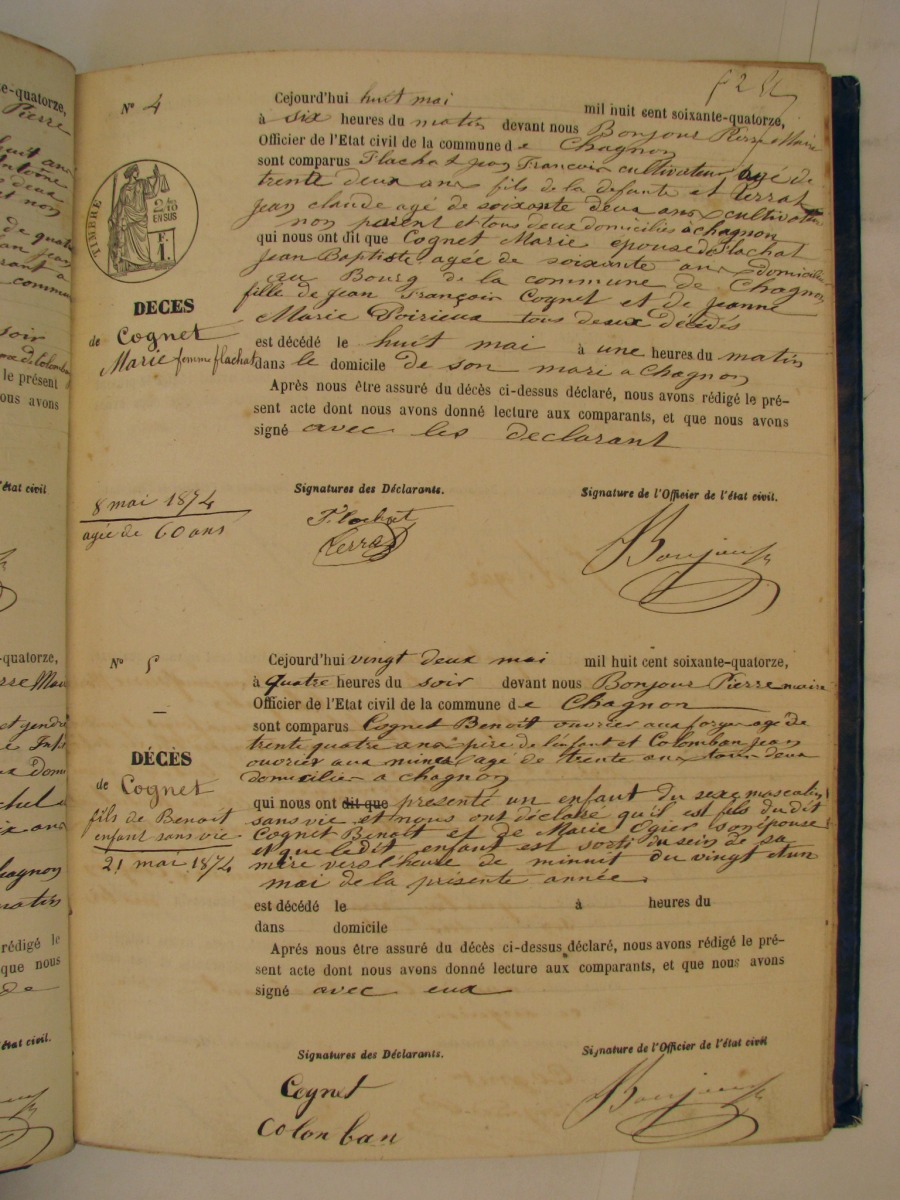 e-quatorze,
Pierre
N° 4
Cejourd'hui huit mai mil huit cent soixante-quatorze,
à six heures du matin devant nous Bonjour Pierre Maire
Officier de l'Etat civil de la commune de Chagnon
sont comparus Flachat Jean François cultivateur agé de
trente deux ans fils de la defunte et Perrat
Jean claude agé de soixante deux ans cultivateur
non parent et tous deux domiciliés a chagnon
qui nous ont dit que Cognet Marie epouse de Flachat
Jean Baptiste agée de soixante ans domiciliée
au Bourg de la commune de Chagnon
fille de Jean François Cognet et de Jeanne
Marie Poirieux tous deux décédés
est décédé le huit mai à une heures du matin
dans le domicile de son mari a Chagnon
Après nous être assuré du décès ci-dessus déclaré, nous avons rédigé le pré-
sent acte dont nous avons donné lecture aux comparants, et que nous avons
signé avec les declarant
TIMBRE
2/10
EN SUS
F.
1.
DECES
de Cognet
Marie femme flachat
8 mai 1874
agée de 60 ans
Signatures des Déclarants.
Signature de l'Officier de l'état civil.
Flachat
Perrat
Bonjour
N° 5
Cejourd'hui vingt deux mai mil huit cent soixante-quatorze,
à quatre heures du soir devant nous Bonjour Pierre maire
Officier de l'Etat civil de la commune de Chagnon
sont comparus Cognet Benoit ouvrier aux forges agé de
trente quatre ans pere de l'enfant et Colomban Jean
ouvrier aux mines agé de trente ans tous deux
domicilier a chagnon
qui nous ont dit que presenté un enfant du sexe masculin
sans vie et nous ont déclaré qu'il est fils du dit
Cognet Benoit et de Marie Ogier son épouse
et que ledit enfant est sorti du sein de sa
mère vers l'heure de minuit du vingt et un
mai de la présente année.
est décédé le à heures du
dans domicile
Après nous être assuré du décès ci-dessus déclaré, nous avons rédigé le pré-
sent acte dont nous avons donné lecture aux comparants, et que nous avons
signé avec eux
DÉCÈS
de Cognet
fils de Benoit
enfant sans vie
21 mai 1874
Signatures des Déclarants.
Signature de l'Officier de l'état civil
Cognet
Colomban
Bonjour